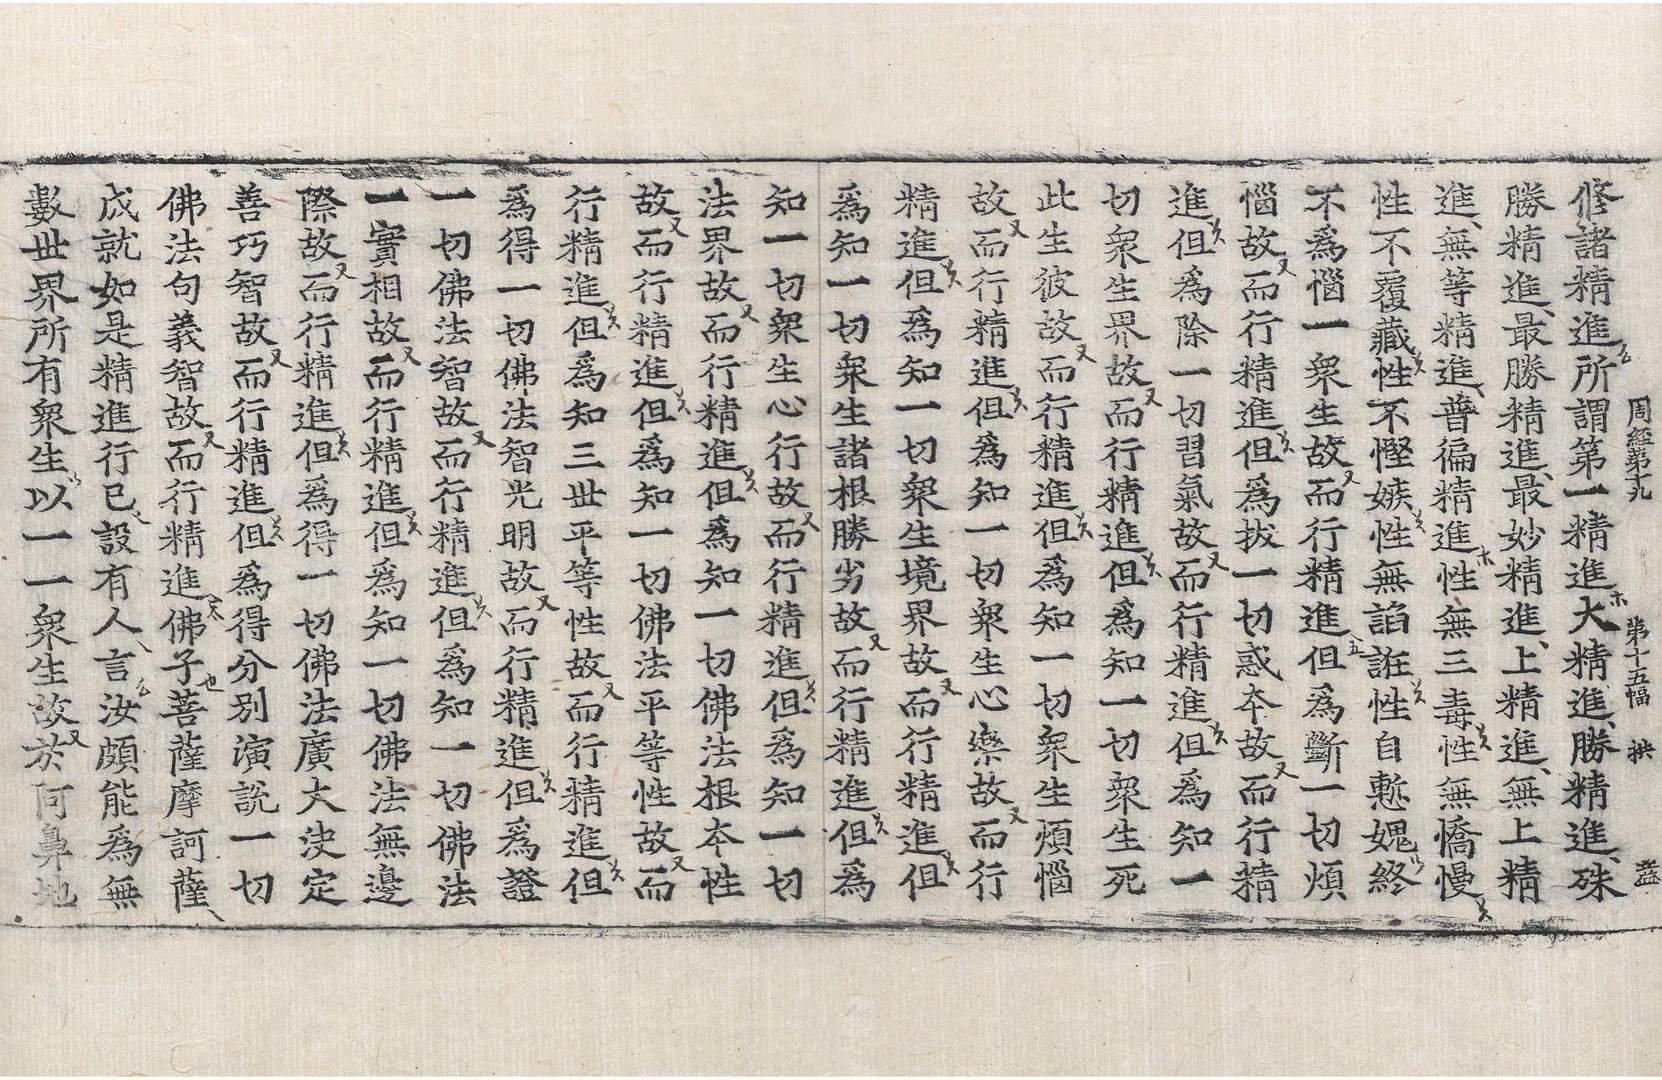 周經第十九 第十五幅 拱
修諸精進所謂第一精進大精進勝精進殊
勝精進最勝精進最妙精進上精進無上精
進無等精進普徧精進性無三毒性無憍慢
性不覆藏性不慳嫉性無諂誑性自慙媿終
不爲惱一衆生故而行精進但爲斷一切煩
惱故而行精進但爲拔一切惑夲故而行精
進但爲除一切習氣故而行精進但爲知一
切衆生界故而行精進但爲知一切衆生死
此生彼故而行精進但爲知一切衆生煩惱
故而行精進但爲知一切衆生心樂故而行
精進但爲知一切衆生境界故而行精進但
爲知一切衆生諸根勝劣故而行精進但爲
知一切衆生心行故而行精進但爲知一切
法界故而行精進但爲知一切佛法根夲性
故而行精進但爲知一切佛法平等性故而
行精進但爲知三世平等性故而行精進但
爲得一切佛法智光明故而行精進但爲證
一切佛法智故而行精進但爲知一切佛法
一實相故而行精進但爲知一切佛法無邊
際故而行精進但爲得一切佛法廣大決定
善巧智故而行精進但爲得分別演說一切
佛法句義智故而行精進佛子菩薩摩訶薩
成就如是精進行已設有人言汝頗能爲無
數世界所有衆生以一一衆生故於阿鼻地